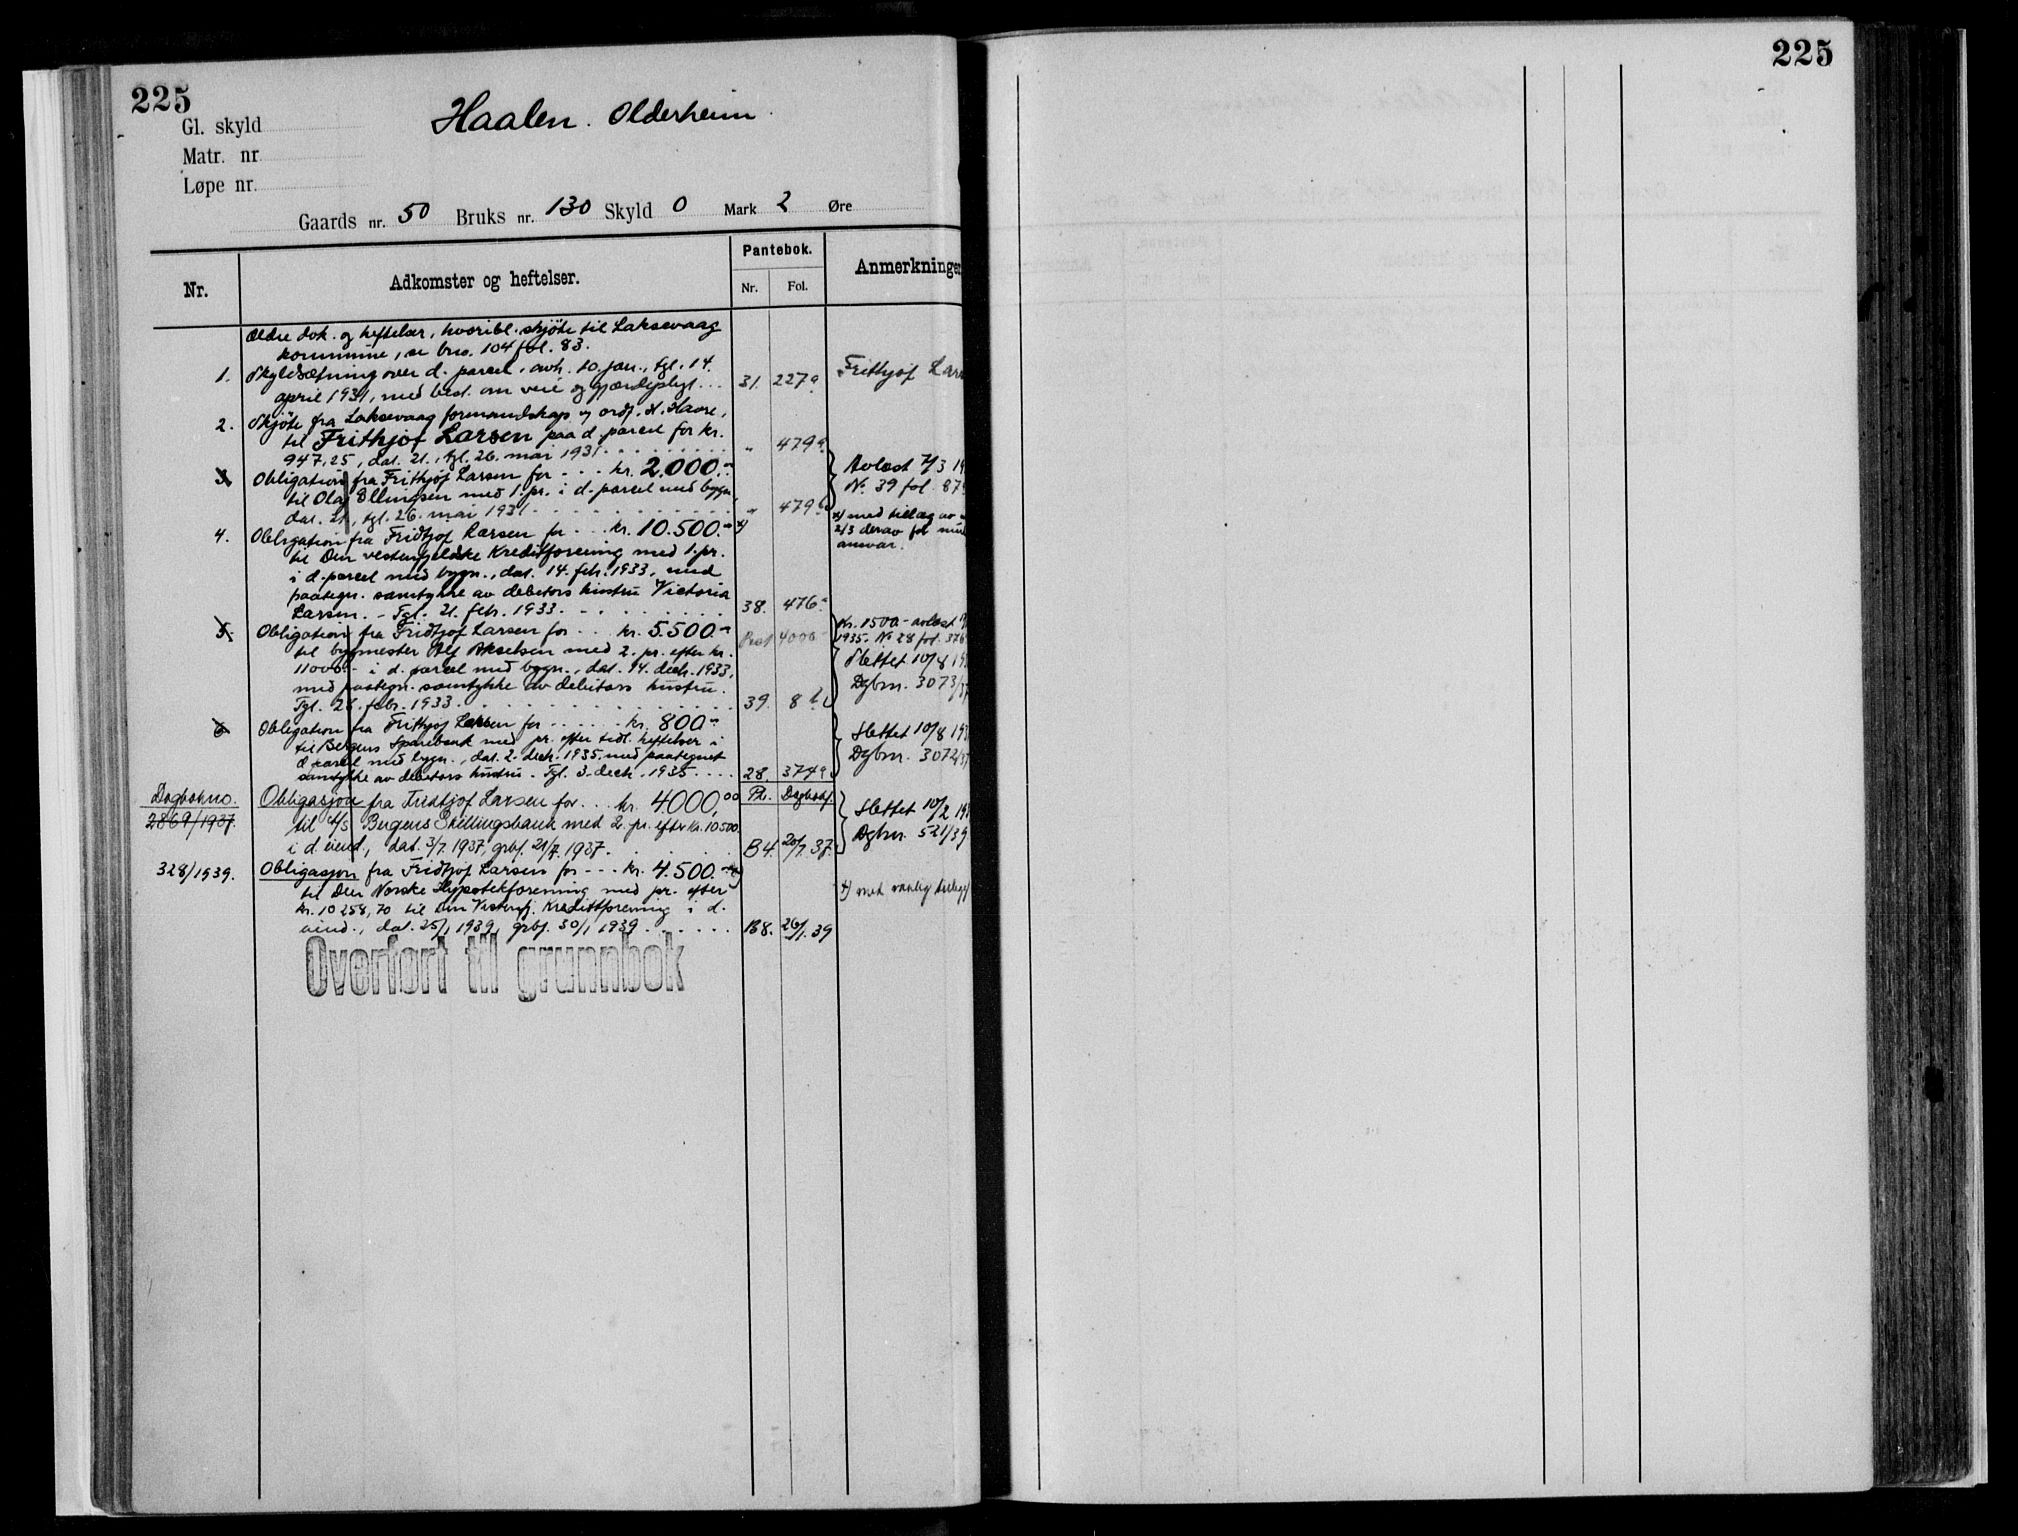 225
225
Gl. skyld
Haalen. Olderheim
Matr. nr
Løpe nr.
Gaards nr. 50 Bruks nr. 130 Skyld 0 Mark 2 Øre
Nr.
Adkomster og heftelser.
Pantebok.
Nr. Fol.
Anmerkninger
Ældre dok. og heftelser, hvoribl. skjöte til Laksevaag
kommune, se bno. 104 fol. 83.
1. Skyldsætning over d. parcel, avh. 10. jan., tgl. 14.
april 1931, med best. om veie og gjærdepligt... 31. 227a
Frithjof Lars
2. Skjöte fra Laksevaag formandskap v/ ordf. H. Haare,
til Frithjof Larsen paa d. parcel for kr.
947,25, dat. 21., tgl. 26. mai 1931 " 479a
3. Obligation fra Frithjof Larsen for ... kr. 2.000.-
til Olaf Ellingsen med 1. pr. i d. parcel med bygn.,
dat. 21., tgl. 26. mai 1931 " 479b
Avlæst 7/3 19
N. 39 fol. 87
4. Obligation fra Fridtjof Larsen for ... kr. 10.500.- x)
til Den vestenfjeldske Kreditforening med 1. pr.
i d. parcel med bygn., dat. 14. febr. 1933, med
paategn. samtykke av debitors hustru Victoria
Larsen. - Tgl. 21. febr. 1933. 38. 476a
x) med tillæg av
2/3 derav for
ansvar.
5. Obligation fra Fridtjof Larsen for ... kr. 5.500.-
Rest 4000.-
til bygmester Alf Akselsen med 2. pr. efter kr.
11000.- i d. parcel med bygn., dat. 14. decb. 1933,
med paategn. samtykke av debitors hustru.
Tgl. 28. febr. 1933. 39. 8b
Kr. 1500.- avlæst
1935. No 28 fol. 376
Slettet 10/8 19
Dgbnr. 3073/37
6 Obligation fra Frithjof Larsen for ... kr. 800.-
til Bergens Sparebank med pr. efter tidl. heftelser i
d. parcel med bygn., dat. 2. decb. 1935, med paategnet
samtykke av debitors hustru. Tgl. 3. decb. 1935.... 28. 374a
Slettet 10/8 19
Dgbnr. 3072/37
Dagbokno.
2869/1937.
Obligasjon fra Fridtjof Larsen for... kr. 4000,00
Pb. Dagbokf.
til A/S Bergens Skillingsbank med 2. pr. efter kr. 10500
i d. eiend., dat. 3/7. 1937, grbf. 21/7. 1937. B4. 20/7. 37.
Slettet 10/2 19
Dgbnr. 521/39.
328/1939.
Obligasjon fra Fridtjof Larsen for --- kr. 4.500.- x)
til Den Norske Hypotekforening med pr. efter
kr. 10258,70 til Den Vestenfj. Kredittforening i d.
eiend., dat. 25/1 1939, grbf. 30/1 1939. B8. 26/1. 39
x) med vanlig tillegg
Overført til grunnbok